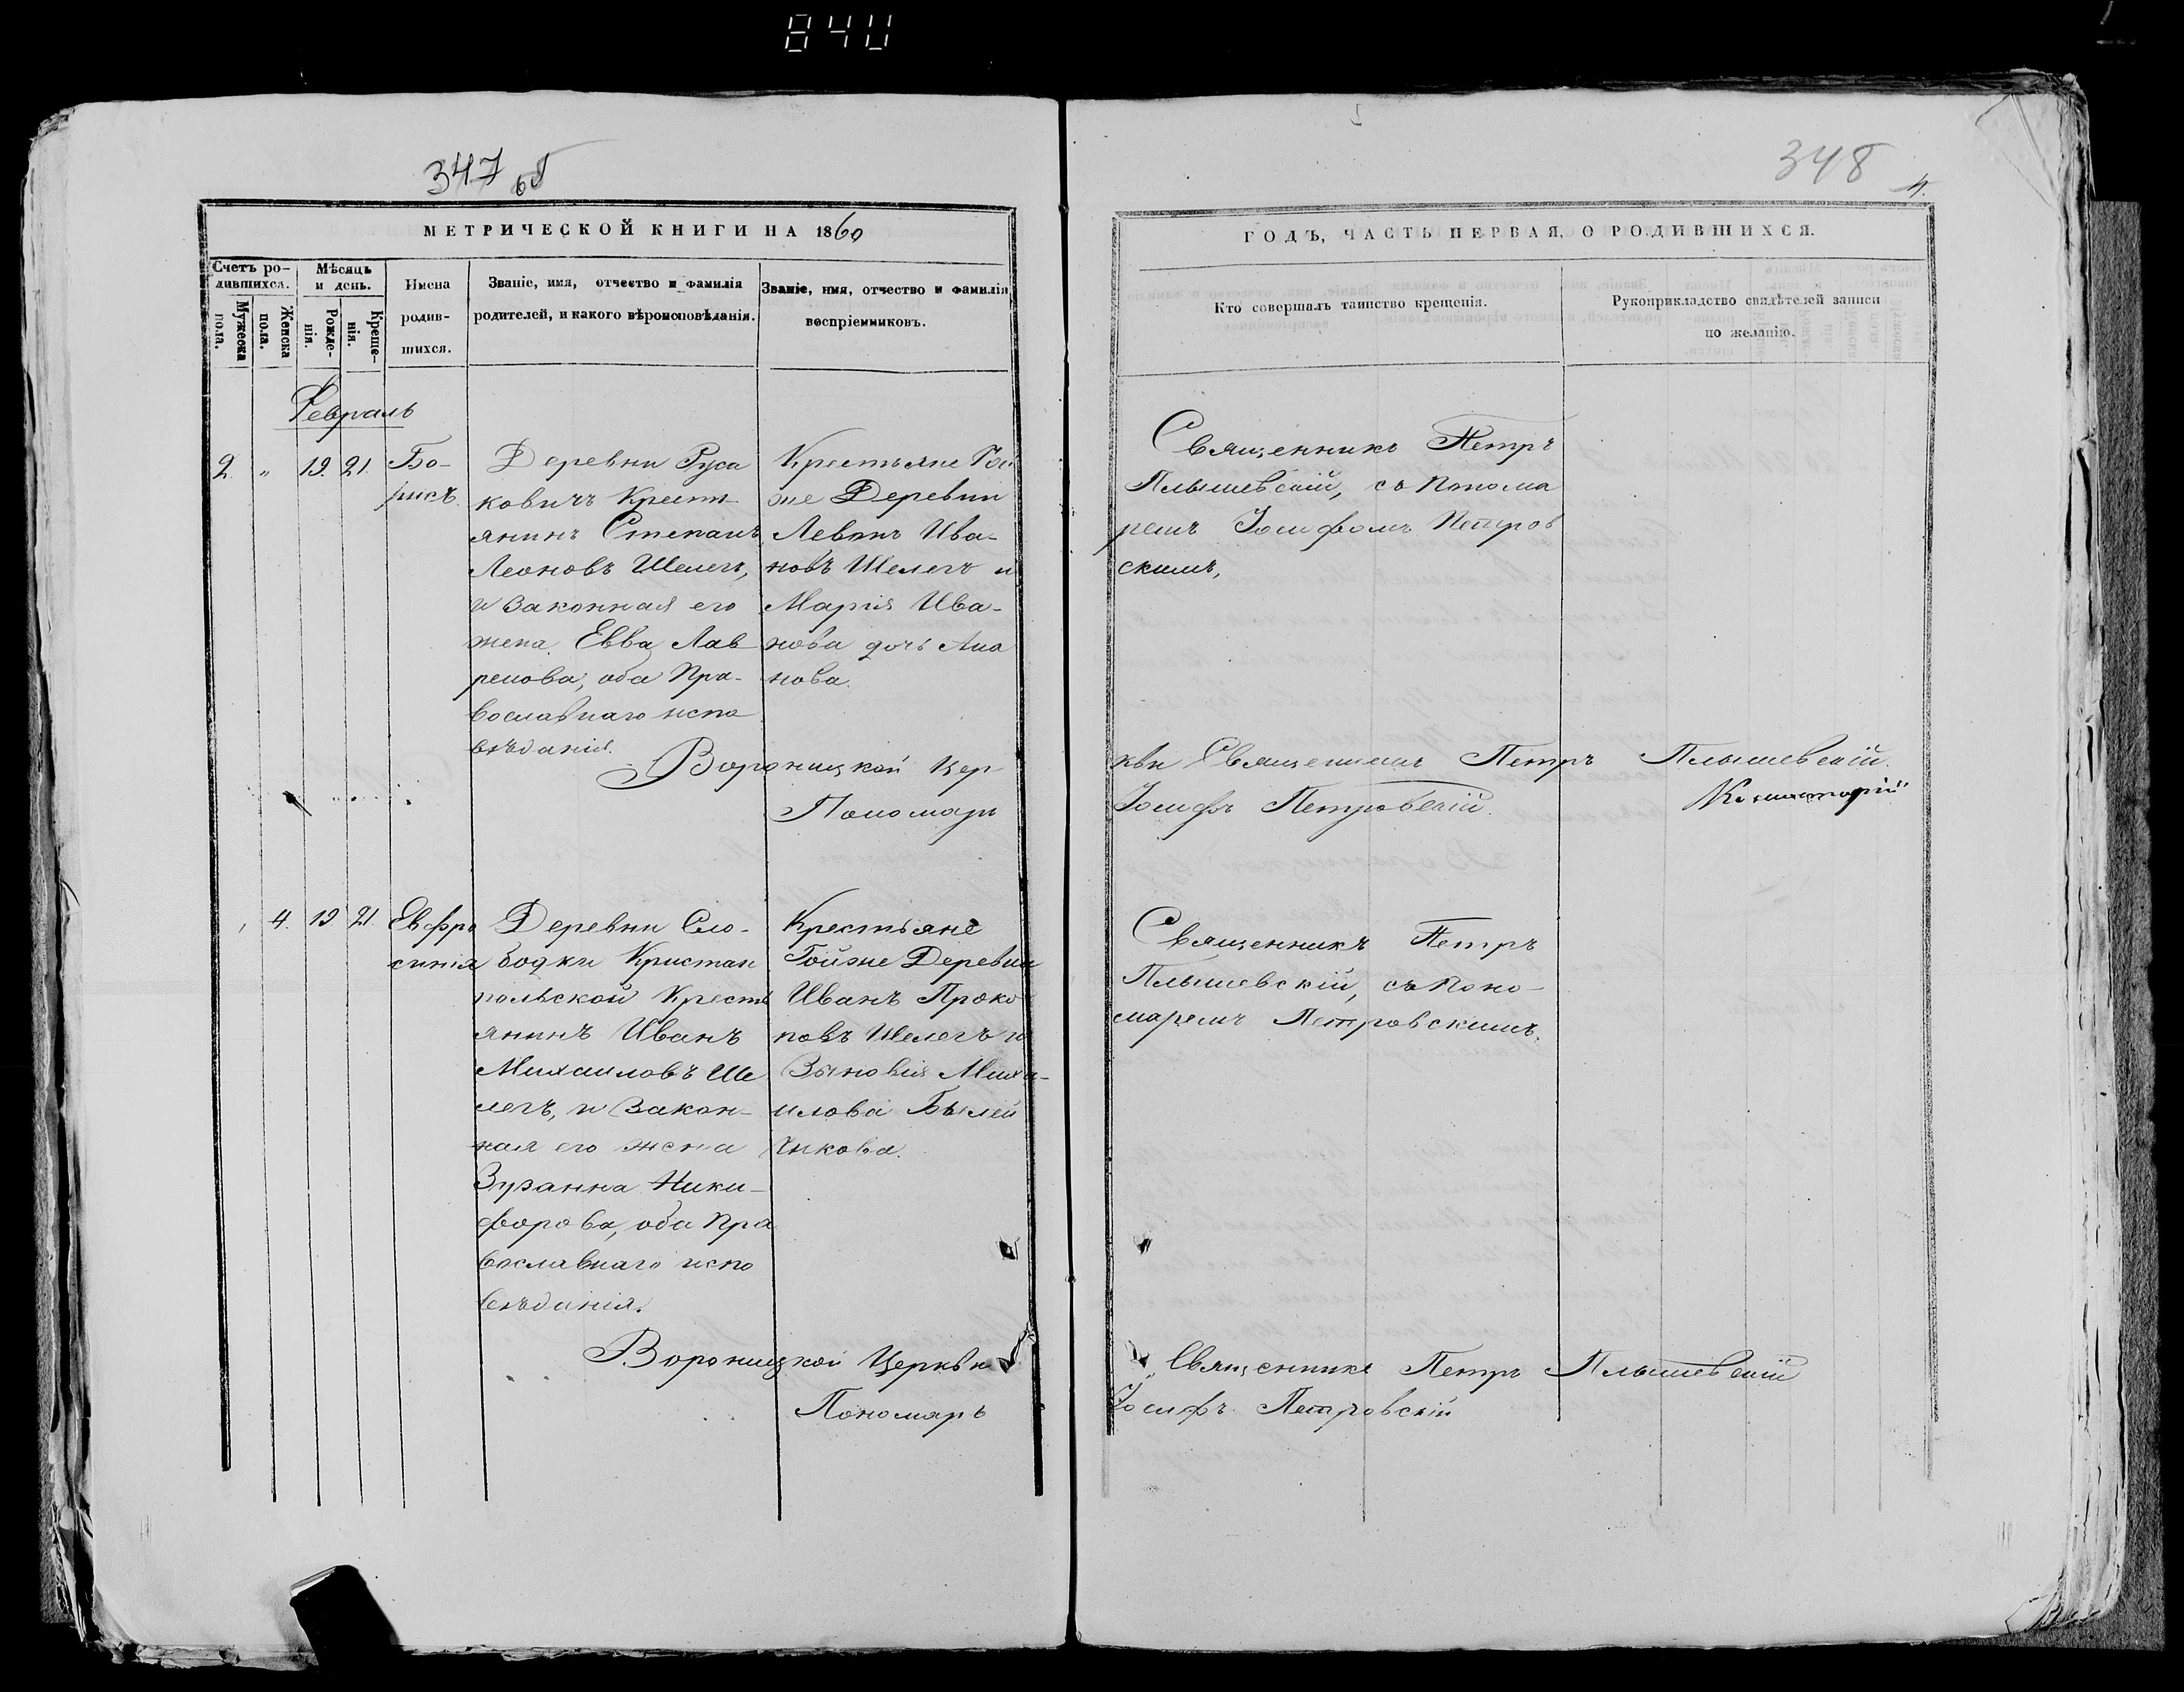 840
347 об
348
4.
МЕТРИЧЕСКОЙ КНИГИ НА 1860
ГОДЪ, ЧАСТЬ ПЕРВАЯ, О РОДИВШИХСЯ.
Счетъ ро-
дившихся.
Мужеска
пола.
Женска
пола.
Мѣсяцъ
и день.
Рожде-
нія.
Креще-
нія.
Имена
родив-
шихся.
Званіе, имя, отчество и фамилія
родителей, и какого вѣроисповѣданія.
Званіе, имя, отчество и фамилія
воспріемниковъ.
Кто совершалъ таинство крещенія.
Рукоприкладство свидѣтелей записи
по желанію.
Февраль
2. " 19. 21.
Бо-
рисъ.
Деревни Руса
ковичъ Крестъ
янинъ Степанъ
Леоновъ Шелегъ,
и законная его
жена Евва Лав
ренова, оба Пра-
вославнаго испо
вѣданія.
Крестьяне Той
же Деревни
Левонъ Ива-
новъ Шелегъ и
Марія Ива-
нова дочь
нова.
Священникъ Петръ
Плышевскій, съ Понома
ремъ Іосифомъ Петров
скимъ,
Вороницкой Цер
кви Священникъ Петръ Плышевскій.
Пономарь
Іосифъ Петровскій.
4. 19 21
Евфро
синія
Деревни Сло-
бодки Кристан
польской Кресть
янинъ Иванъ
Михаиловъ Ше
легъ, и закон-
ная его жена
Зузанна Ники-
форова, оба Пра
вославнаго испо
вѣданія.
Крестьяне
Тойже Деревни
Иванъ Проко
повъ Шелегъ и
Зѣновія Миха-
илова Былей
никова.
Священникъ Петръ
Плышевскій, съ Поно-
маремъ Петровскимъ.
Вороницкой Церкви
Священникъ Петръ Плышевскій
Пономарь
Іосифъ Петровскій